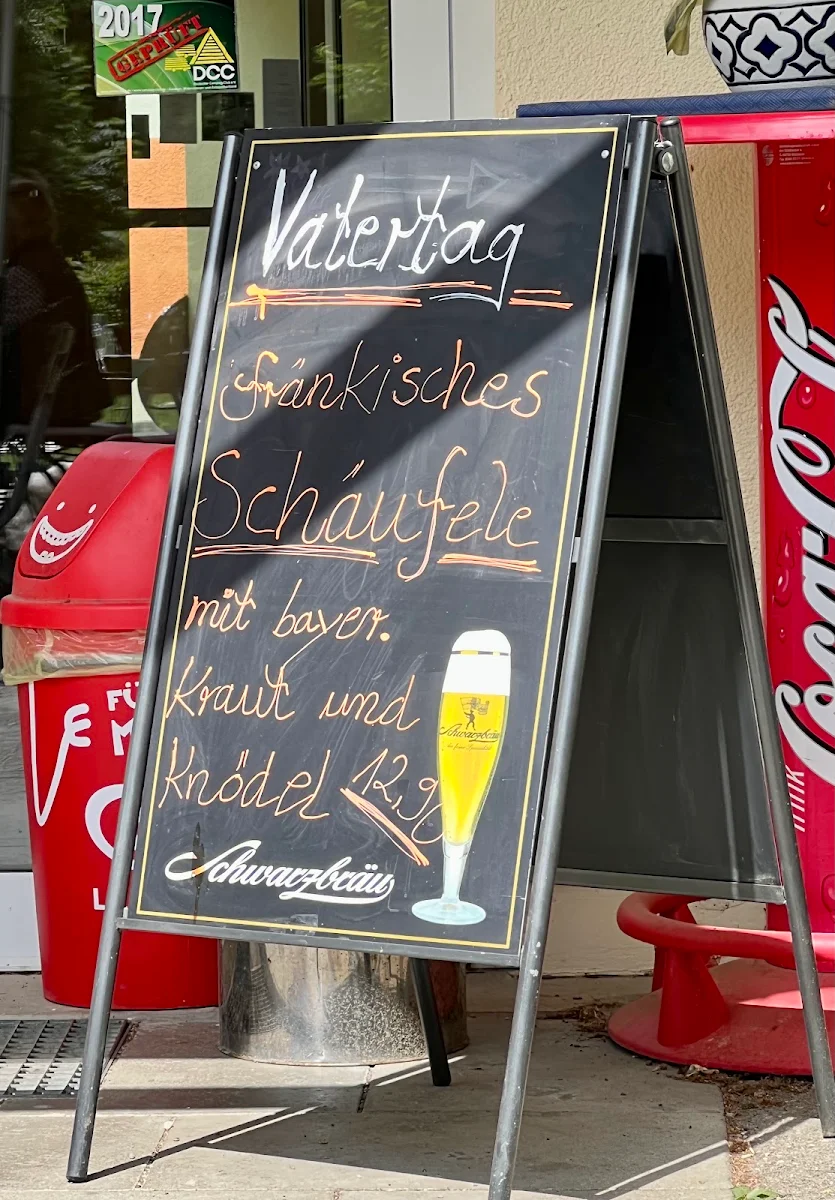 2017
GEPRÜFT
DCC
Vatertag
fränkisches
Schäufele
mit bayer.
Kraut und
Knödel 12,90
Schwarzbräu
Schwarzbräu
FÜ
M
L
Coca-Col